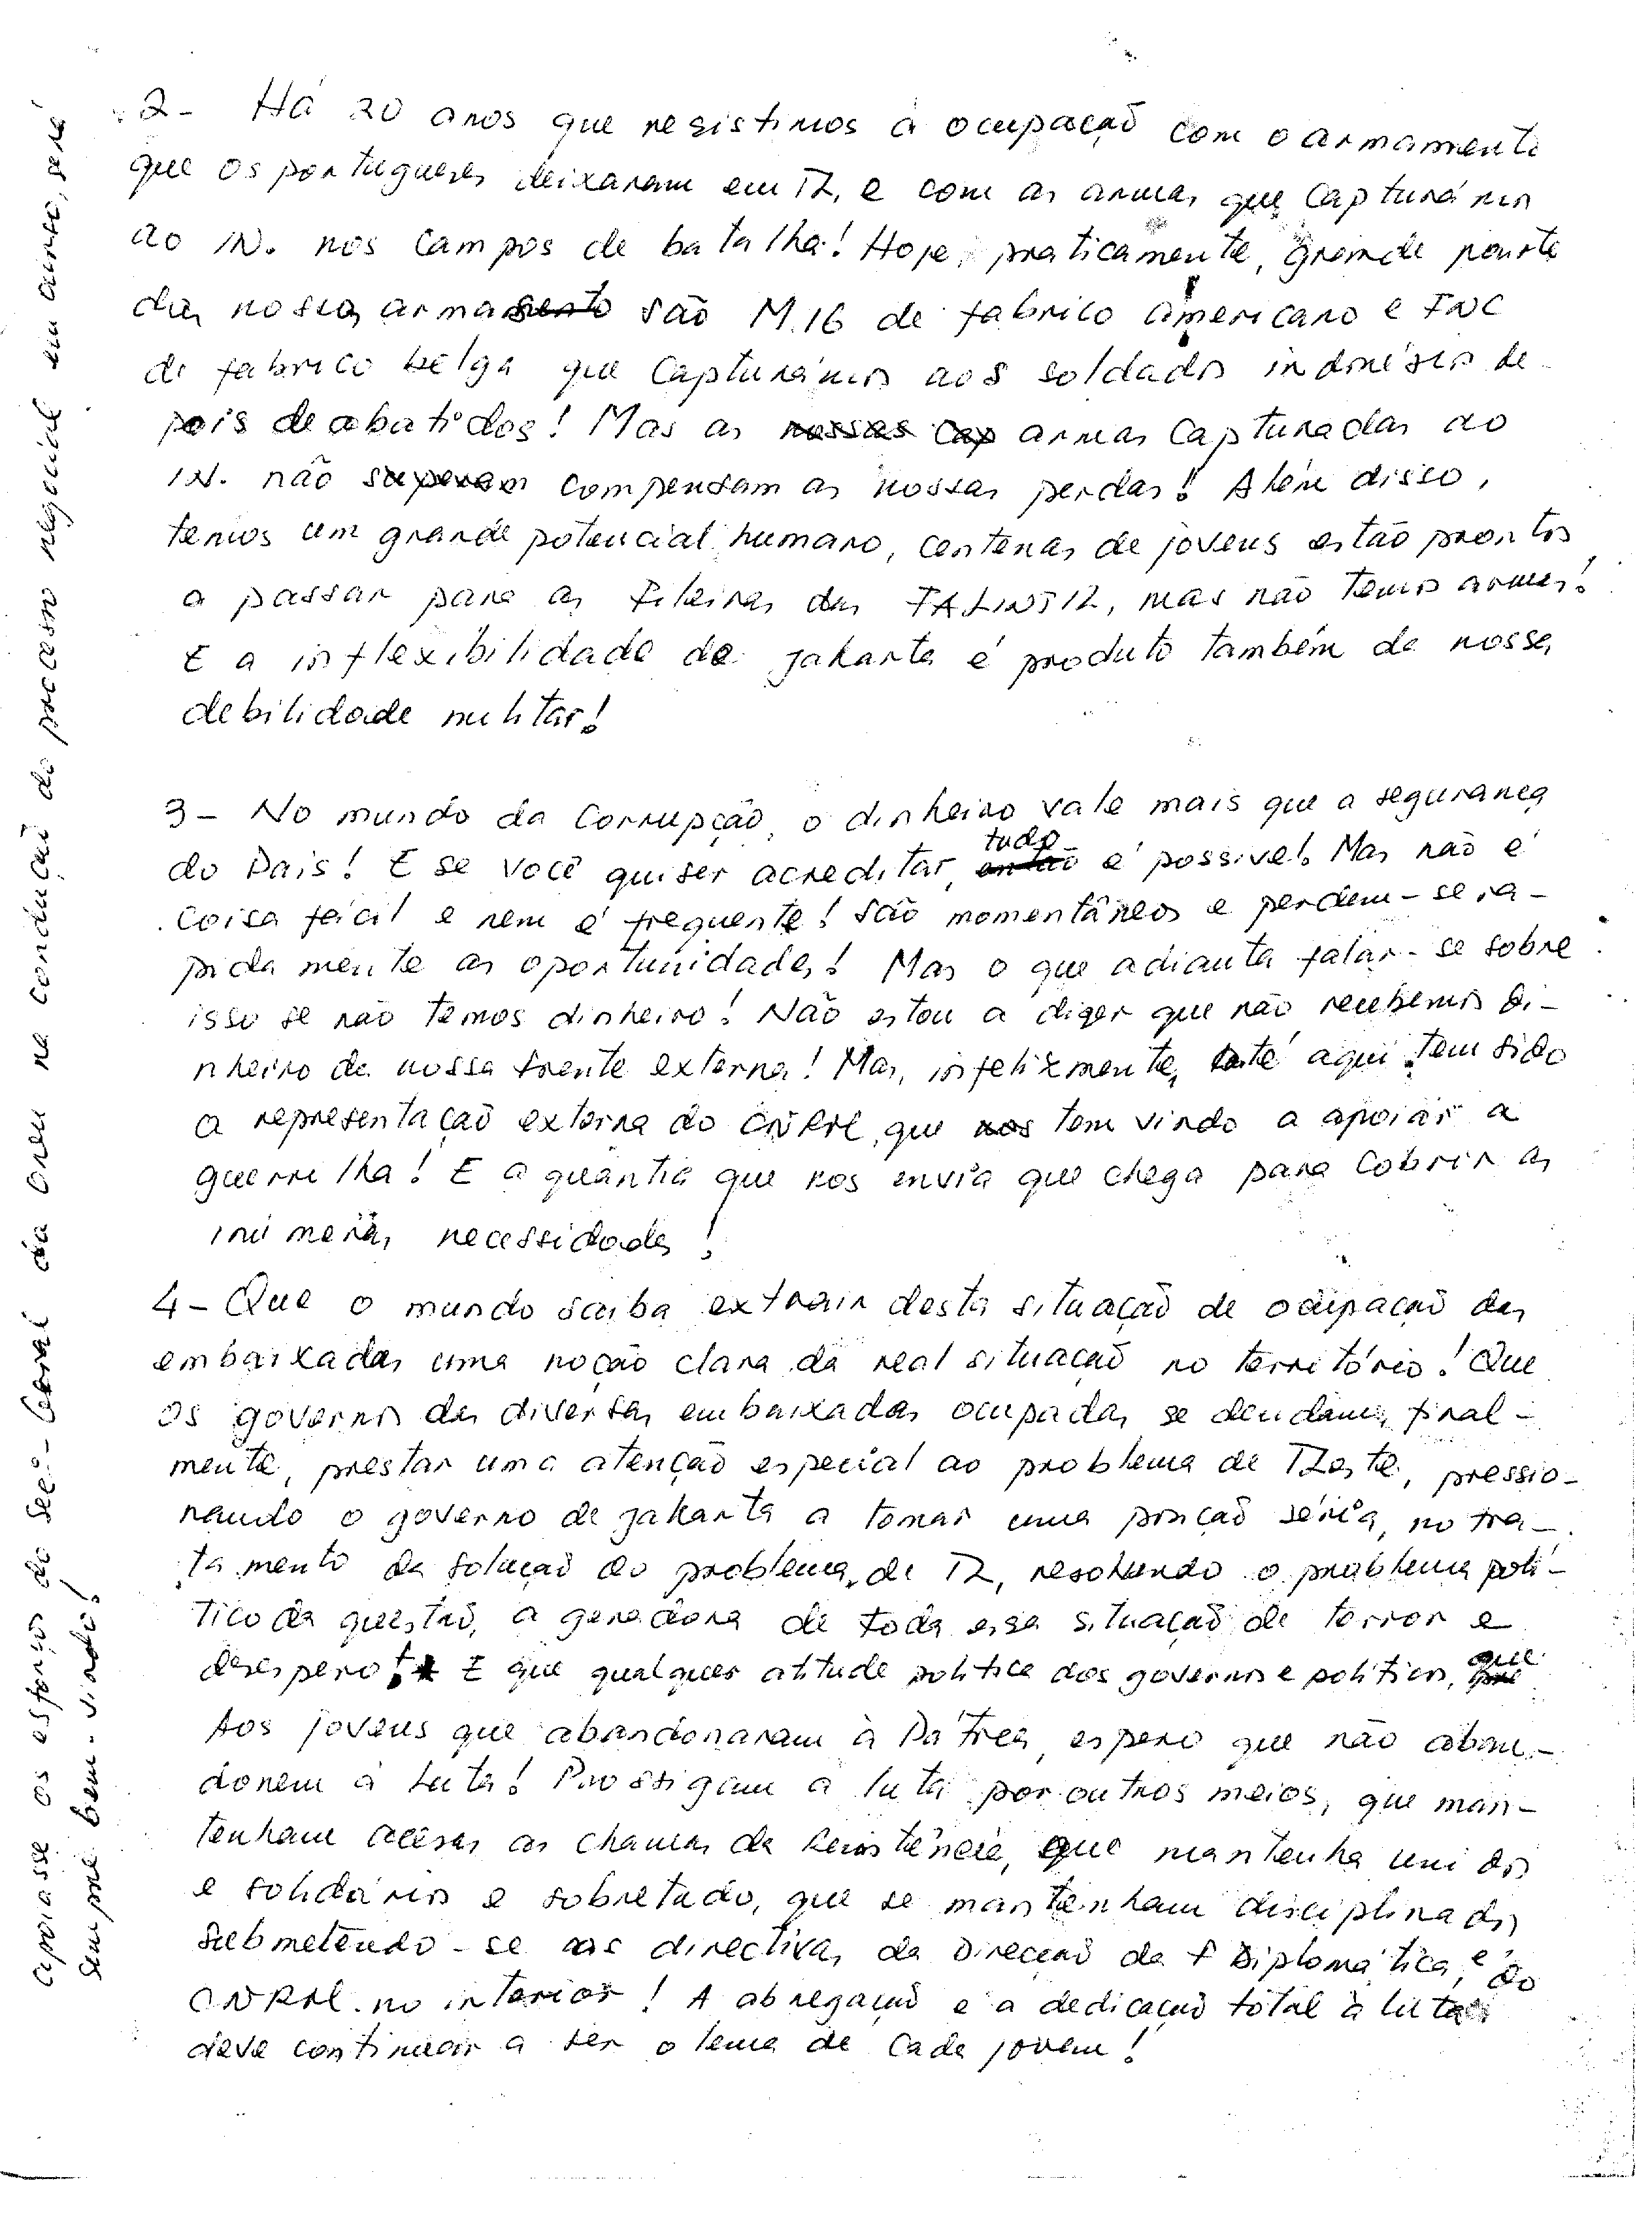 2- Há 20 anos que resistimos à ocupação com o armamento
que os portugueses deixaram em TL, e com as armas que capturámos
ao IN. nos campos de batalha! Hoje, praticamente, grande parte
das nossas armas são M.16 de fabrico americano e FNC
de fabrico belga que capturámos aos soldados indonésios de-
pois de abatidos! Mas as armas capturadas ao
IN. não compensam as nossas perdas! Além disso,
temos um grande potencial humano, centenas de jovens estão prontos
a passar para as fileiras das FALINTIL, mas não temos armas!
E a inflexibilidade de Jakarta é produto também da nossa
debilidade militar!
3- No mundo da corrupção, o dinheiro vale mais que a segurança
do País! E se você quiser acreditar, tudo é possível. Mas não é
coisa fácil e nem é frequente! São momentâneos e perdem-se ra-
pidamente as oportunidades! Mas o que adianta falar-se sobre
isso se não temos dinheiro! Não estou a dizer que não recebemos di-
nheiro da nossa frente externa! Mas, infelizmente, até aqui tem sido
a representação externa do CNRM, que tem vindo a apoiar a
guerrilha! E a quantia que nos envia que chega para cobrir as
inúmeras necessidades!
4- Que o mundo saiba extrair desta situação de ocupação das
embaixadas uma noção clara da real situação no território! Que
os governos das diversas embaixadas ocupadas se decidam, final-
mente, prestar uma atenção especial ao problema de TLeste, pressio-
nando o governo de Jakarta a tomar uma posição séria, no tra-
tamento da solução do problema de TL, resolvendo o problema polí-
tico da questão, a geradora de toda essa situação de terror e
desespero! E que qualquer atitude política dos governos e políticos, que
apoiasse os esforços do Sec.-Geral da ONU na condução do processo negocial em curso, será
sempre bem-vinda!
Aos jovens que abandonaram à Pátria, espero que não aban-
donem a luta! Prossigam a luta por outros meios, que man-
tenham acesas as chamas da Resistência, que mantenha unidos
e solidários e sobretudo, que se mantenham disciplinados
submetendo-se às directivas da Direcção da F Diplomática, e do
CNRM no interior! A abnegação e a dedicação total à luta
deve continuar a ser o lema de cada jovem!